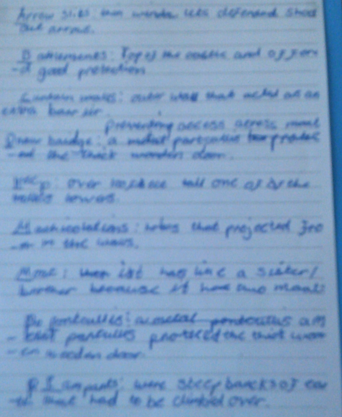 Arrow slits: thin windows lets defenand shoot
out arrows.
Battlements: Top of the castle and offer
-d good protection
Curtain walls: outer wall that acted as an
extra barrier.
Preventing access across moat
Draw bridge: a metal
-ed the thick wooden door.
Keep: over tall one of the
towers.
Machicolations: holes that projected fro
-m the walls.
Moat: it has like a sister/
because it two moats
Portcullis: a metal portcullis am
- portcullis protected the thick woo
-en wooden door.
Ramparts: were steep bancks of ear
-th that had to be climbed over.